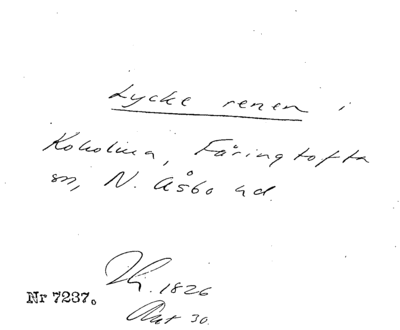 Lycke renen i
Koholma, Färingtofta
sn, N. Åsbo hd.
Nr 7237.
1826
30.